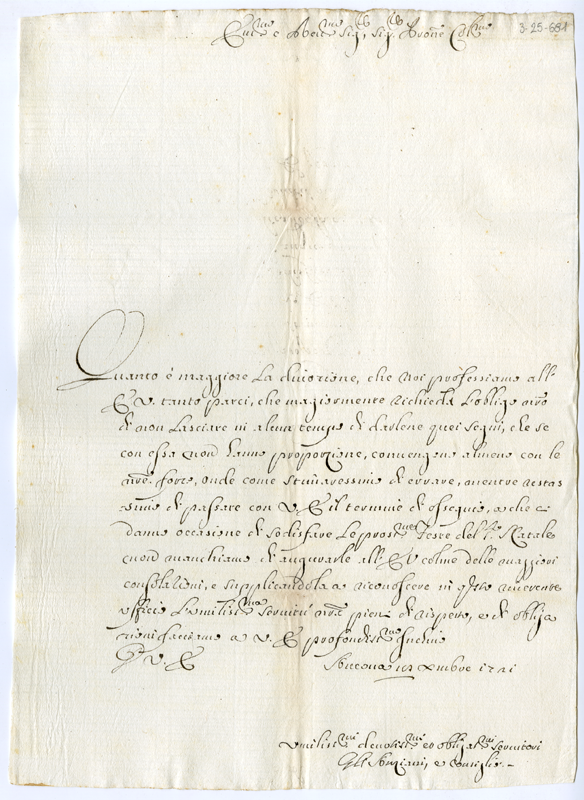 3-25-681
Em.mo e Rev.mo Sig.r, Sig.r Prone Col.mo
Quanto è maggiore la divozione, che noi professiamo all'
E V tanto parci, che magiormente richieda l'obligo nro
di non lasciare in alcun tempo di darlene quei segni, che se
con essa non hanno proporzione, convengono almeno con le
nre forze, onde come stimaressimo di errare, mentre
di passare con V E il termine di ossequio, a che
danno occasione di sodisfare le pros.me Feste del S. Natale
non manchiamo di augurarle all' E V colme delle maggiori
consolationi, e supplicandola a riconoscere in q.sto riverente
ufficio l'umiliss.ma servitù nra piena di rispetto, e di obliga
zioni facciamo a V E profondiss.mo inchino
Di V. E
Xmbre 1721
Umiliss.mi devotiss.mi et obligat.mi servitori
Gli Anziani, e Consiglio